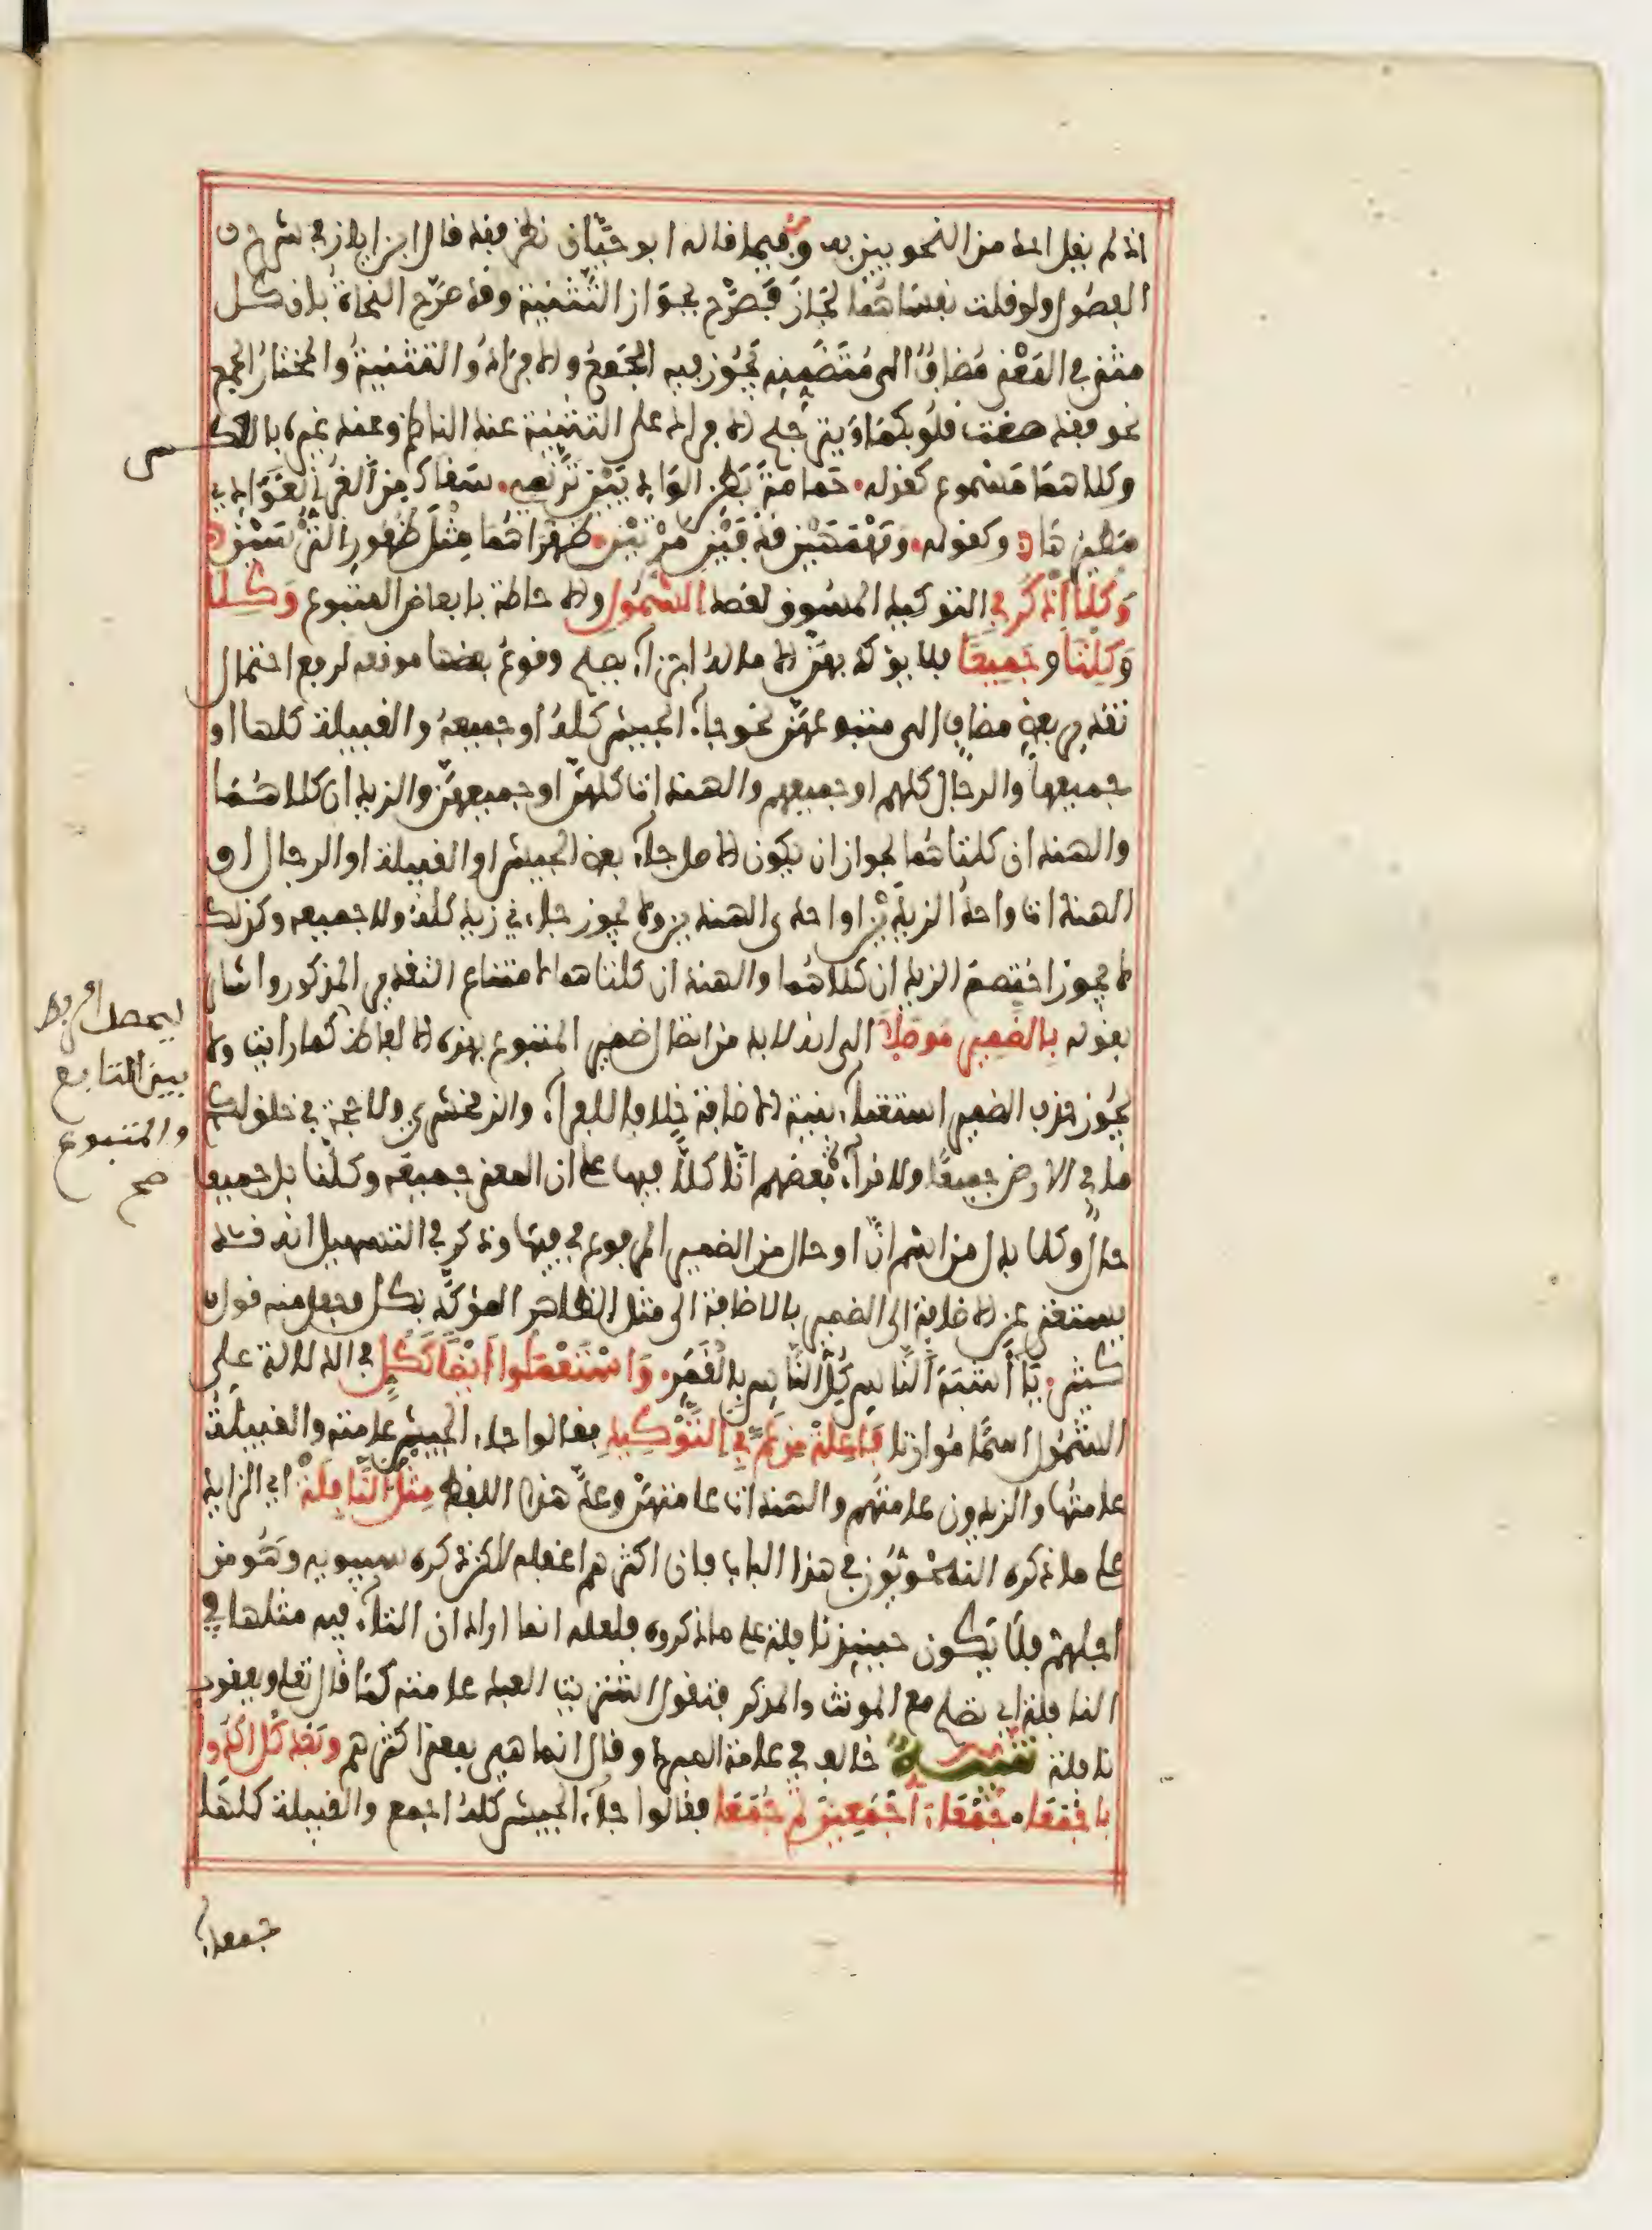 اذ لم يقل احد من النحويين به وفيما قاله ابو حيّان نظر فقد قال ابن اياز في شرح
الفصول ولو قلت نفساهما لجاز فصرّح بجواز التثنية وقد صرّح النحاة بان كل
مثنى في المعنى مضاف الى متضمنه يجوز فيه الجمع والافراد والتثنية والمختار الجمع
نحو فقد صغت قلوبكما ويترجح الافراد على التثنية عند الناظم وعند غيره بالعكس
وكلاهما مسموع كقوله حمامة بطن الواديين ترنمي سقاك من الغر الغوادي
مطيرها وكقوله ومهمهين قذفين مرتين ظهراهما مثل ظهور الترسين
وكلا اذكر في التوكيد المسوق لقصد الشمول والاحاطة بابعاض المتبوع وكلا
وكلتا وجميعا فلا يؤكد بهنّ الا ما له اجزاء يصح وقوع بعضها موقعه لرفع احتمال
تقدير بعض مضاف الى متبوعهنّ نحو جاء الجيش كله او جميعه والقبيلة كلها او
جميعها والرجال كلهم او جميعهم والهندات كلهنّ او جميعهنّ والزيدان كلاهما
والهندان كلتاهما لجواز ان يكون الاصل جاء بعض الجيش او القبيلة او الرجال او
الهندات او احد الزيدين او احدى الهندين ولا يجوز جاءني زيد كله ولا جميعه وكذلك
لا يجوز اختصم الزيدان كلاهما والهندان كلتاهما لامتناع التقدير المذكور واشار
بقوله بالضمير موصلا الى انه لا بد من اتصال ضمير المتبوع بهذه الالفاظ كما رايت ولا
يجوز حذف الضمير استغناء بنية الاضافة خلافا للفراء والزمخشري ولا حجة في خلق لكم
ما في الارض جميعا ولا قراءة بعضهم انّا كلّا فيها على ان المعنى جميعه وكلّنا بل جميعا
حال وكلا بدل من اسم انّ او حال من الضمير المرفوع في فيها وذكر في التسهيل انه قد
يستغنى عن الاضافة الى الضمير بالاضافة الى مثل الظاهر المؤكد بكل وجعل منه قول
كثير يا اشبه الناس كل الناس بالقمر واستعملوا ايضا ككل في الدلالة على
الشمول اسما موازنا فاعلة من عم في التوكيد فقالوا جاء الجيش عامته والقبيلة
عامتها والزيدون عامتهم والهندات عامتهنّ وعدّ هذا اللفظ مثل النافلة اي الزايد
على ما ذكره النحويون في هذا الباب فان اكثرهم اغفله لكن ذكره سيبويه وهو من
اجلهم فلا يكون حينئذ نافلة على ما ذكروه فلعله انما اراد ان التاء فيه مثلها في
النافلة اي تصلح مع المونث والمذكر فتقول اشتريت العبد عامته كما قال تعلى ويعقوب
نافلة تنبيه خالف في عامة المبرد وقال انما هي بمعنى اكثرهم وبعد كل اكدوا
باجمعا جمعاء اجمعين ثم جمعا فقالوا جاء الجيش كله اجمع والقبيلة كلها
جمعاء
ليحصل الربط
بين التابع
والمتبوع
صح